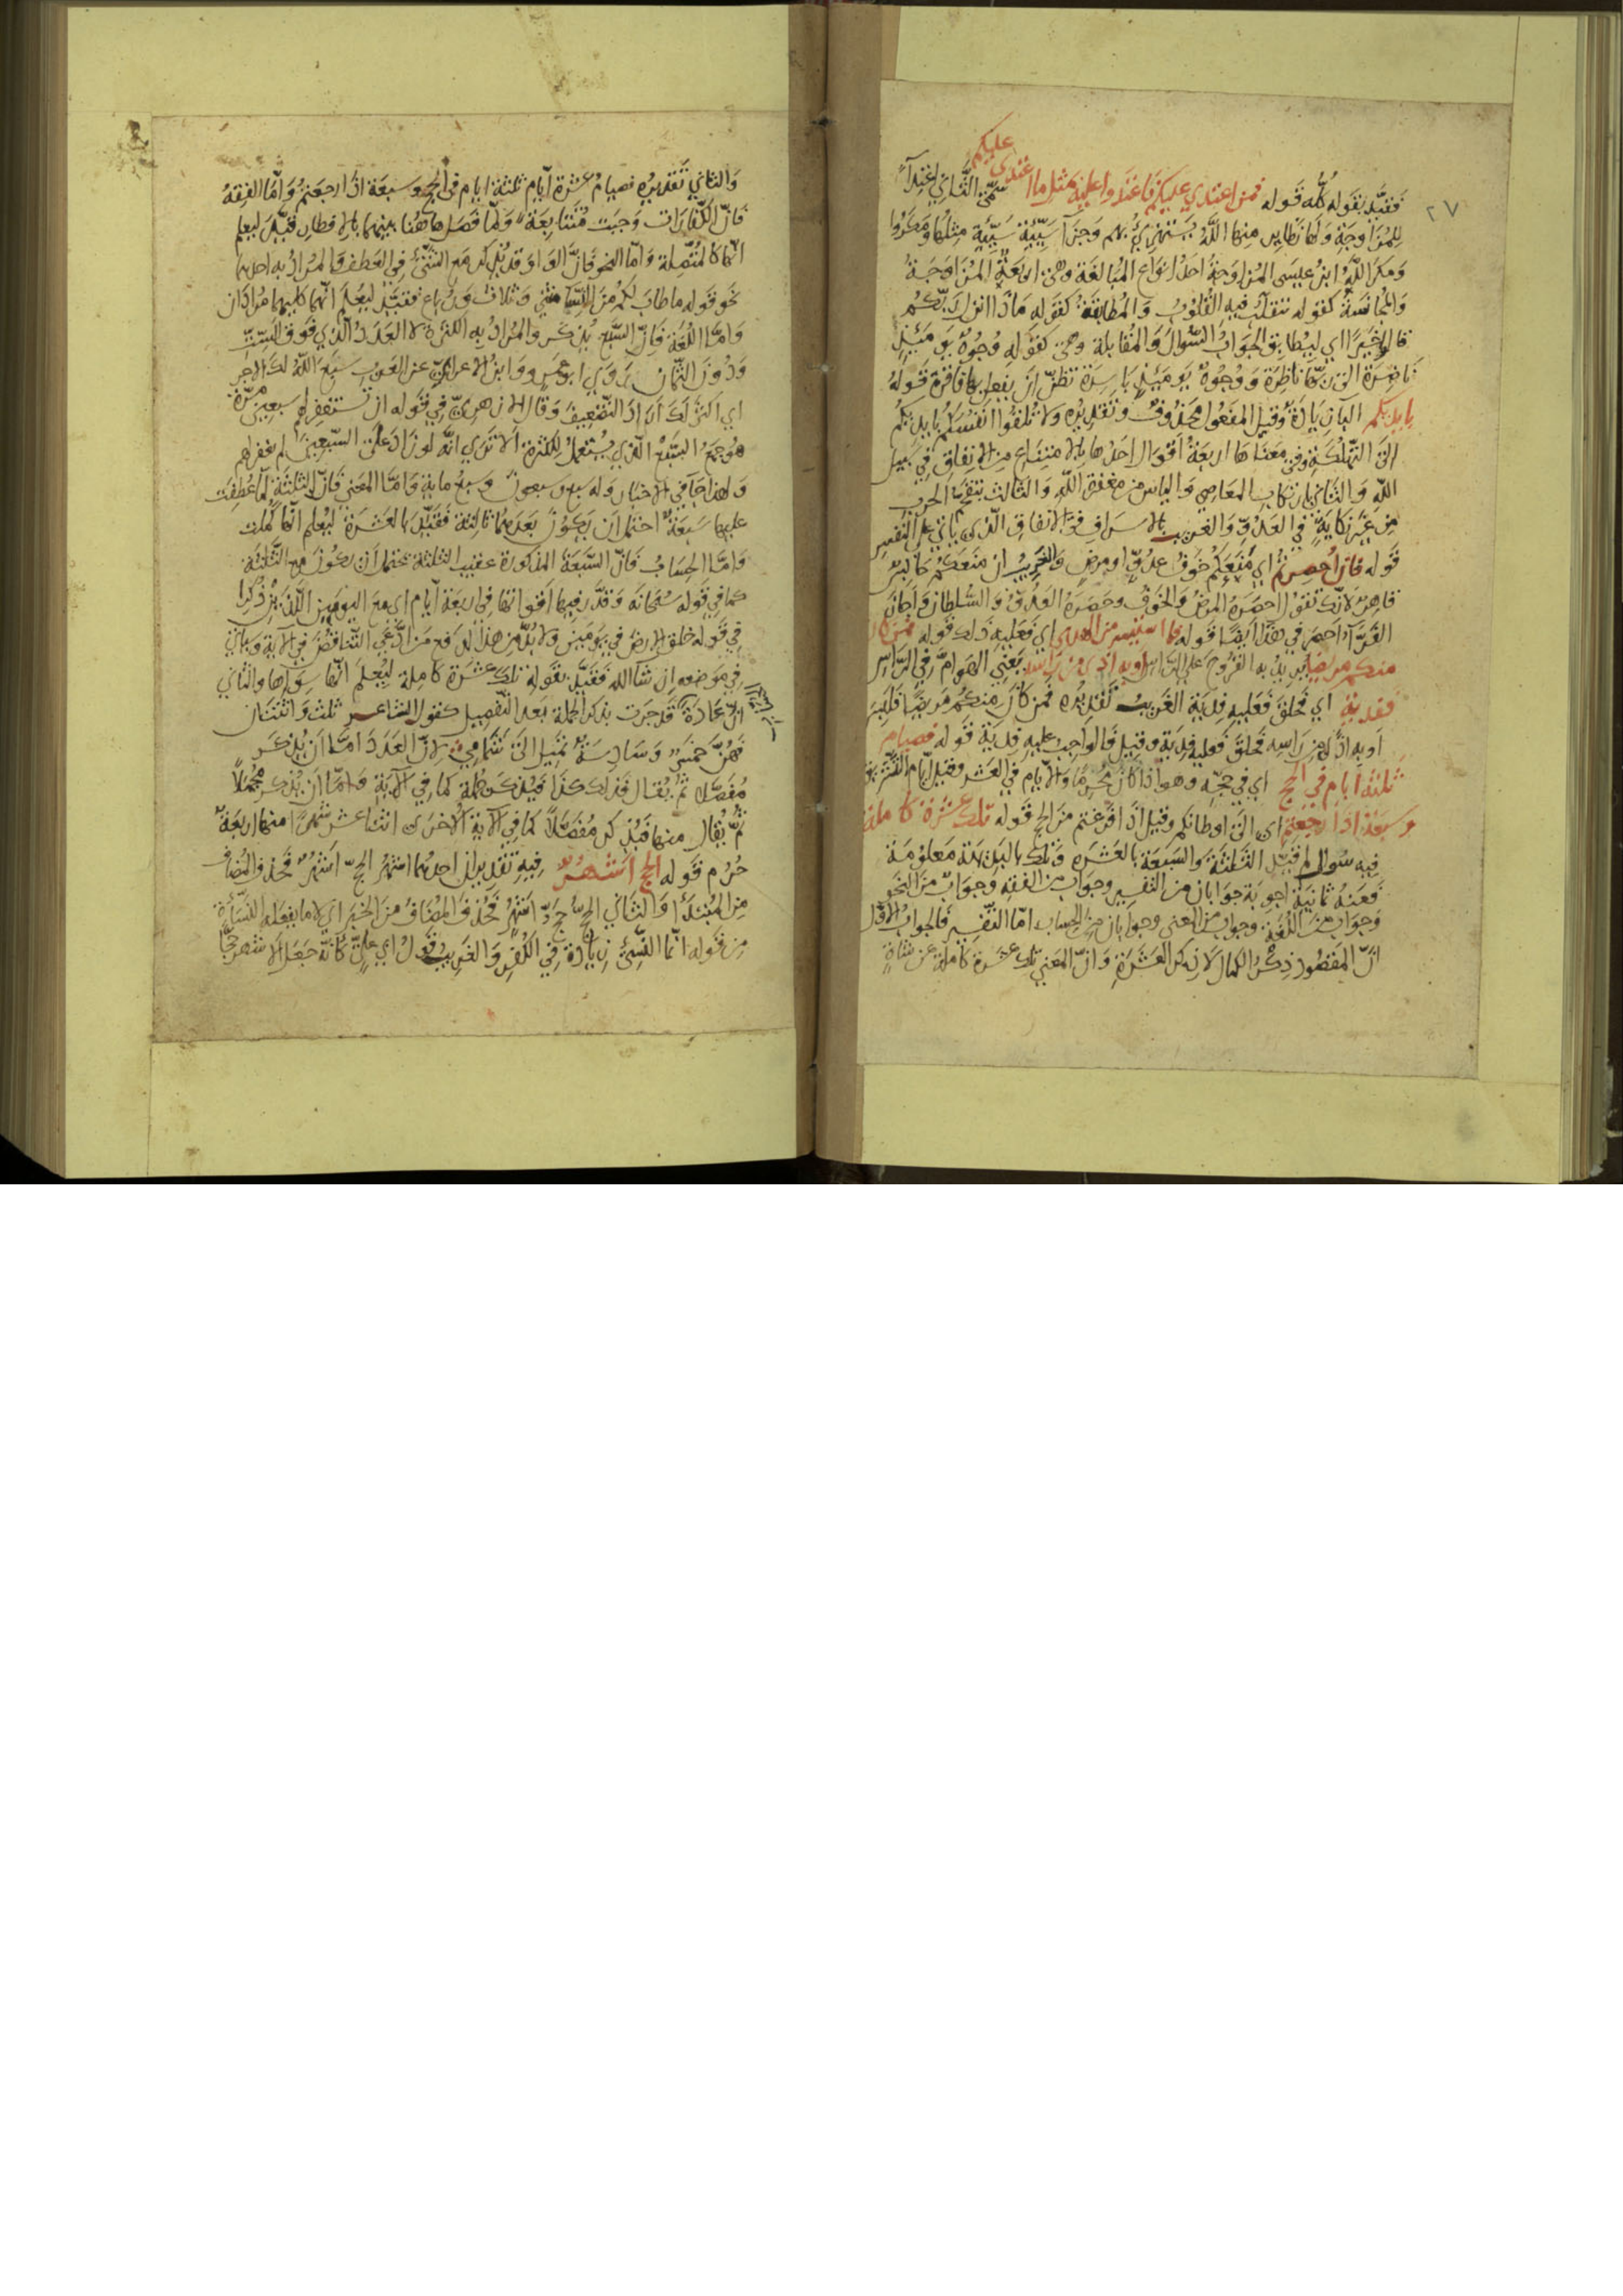 ٢٧
فقيّد بقوله كله قوله فمن اعتدي عليكم فاعتدوا عليه بمثل ما اعتدى عليكم سمّى الثّاني اعتدآء
للمزاوجة ولها نظاير منها اللّه يستهزئ بهم وجزآ سيّئة سيّئة مثلها ومكروا
ومكر اللّه ابن عيسى المزاوجة احد انواع المبالغة وهى اربعة المزاوجة
والمجانسة كقوله تتقلّب فيه القلوب والمطابقة كقوله ماذا انزل ربّكم
قالوا خيرا اي ليطابق الجواب السّوال والمقابلة وهى كقوله وجوه يوميئذ
ناضرة الى ربّها ناظرة ووجوه يوميئذ باسرة تظنّ ان يفعل بها فاقرة قوله
بايديكم البا زيادة وقيل المفعول محذوف وتقديره ولا تلقوا انفسكم بايديكم
الى التّهلكة وفي معناها اربعة اقوال احدها بالامتناع من الانفاق في سبيل
اللّه والثّاني بارتكاب المعاصي والياس من مغفرة اللّه والثالث بتقحّم الحرب
من غير نكاية في العدوّ والغريب الاسراف في الانفاق الّذى ياتي على النّفس
قوله فان احصرتم اي منعكم خوف عدوّ او مرض والغريب ان منعكم حابس
قاهر لانّك تقول احصره المرض والخوف وحصره العدوّ والسّلطان واجاز
الفرّآ احصر في هذا ايضا قوله فما استيسر من الهدي اي فعليه ذلك قوله فمن كان
منكم مريضا يريد به القروح على الرّاس او به اذى من راسه يعني الهوامّ في الرّاس
ففدية اي فحلق فعليه فدية الغريب تقديره فمن كان منكم مريضا فلبس
او به اذى من راسه فحلق فعليه فدية وقيل فالواجب عليه فدية قوله فصيام
ثلثة ايام في الحج اي في حجّه وهو اذا كان محرما والايام في العشر وقيل ايّام التّشريق
وسبعة اذا رجعتم اى الى اوطانكم وقيل اذا فرغتم من الحج قوله تلك عشرة كاملة
فيه سوال لم قيّد الثّلثة والسّبعة بالعشرة وتلك بالبديهة معلومة
فعنه ثمانية اجوبة جوابان من التفسير وجواب من الفقه وجواب من النحو
وجواب من اللّغة وجواب من المعنى وجوابان من الحساب امّا التّفسير فالجواب الاوّل
انّ المقصود ذكر الكمال لا ذكر العشرة وانّ المعنى تلك عشرة كاملة عن شاة
والثاني تقديره فصيام عشرة ايّام ثلثة ايام في الحج وسبعة اذا رجعتم وامّا الفقه
فانّ الكفّارات وجبت متتابعة ولمّا فصل هاهنا بينهما بالافطار قيّد ليعلم
انّها كالمتّصلة وامّا النحو فانّ الواو قد يذكر مع الشئ في العطف والمراد به احدهما
نحو قوله ما طاب لكم من النّسآ مثنى وثلاث ورباع فقيّد ليعلم انّهما كليهما مرادان
وامّا اللغة فانّ السّبع يذكر والمراد به الكثرة لا العدد الّذي فوق السّت
ودون الثّمان روي ابو عمرو وابن الاعرابيّ عن العرب سبّع اللّه لك الاجر
اي اكثر لك اراد التّضعيف وقال الازهريّ في قوله ان تستغفر لهم سبعين مرّة
هو جمع السّبع الّذي يستعمل للكثرة الا تري انّه لو زاد على السّبعين لم يغفر لهم
ولهذا جآ في الاخبار وله سبع وسبعون وسبع ماية وامّا المعنى فانّ الثلثة لمّا عطفت
عليها سبعة احتمل ان يكون بعدهما ثالثة فقيّد بالعشرة ليعلم انّها كملت
وامّا الحساب فانّ السّبعة المذكورة عقيب الثلثة تحتمل ان يكون مع الثلثة
كما في قوله سبحانه وقدّر فيها اقواتها في اربعة ايام اى مع اليومين اللذين ذكرا
في قوله خلق الارض في يومين ولا بدّ من هذا لدفع من ادّعي التّناقض في الاية وياتي
في موضعه ان شا الله فقيّد بقوله تلك عشرة كاملة ليعلم انّها سواها والثاني
انّ عادة قد جرت بذكر الجملة بعد التّفصيل كقول الشاعر ثلث واثنتان
فهنّ خمس وسادسة تميل الى شمامي لانّ العدد امّا ان يذكر
مفصّلا ثمّ يقال فذلك كذا فيذكر جملة كما في الاية وامّا ان يذكر مجملا
ثمّ يقال منها فيذكر مفصّلا كما في الاية الاخرى اثنا عشر شهرا منها اربعة
حرم قوله الحج اشهر فيه تقديران احدهما اشهر الحجّ اشهر فحذف المضاف
من المبتدأ والثّاني الحجّ حجّ اشهر فحذف المضاف من الخبر اي لا ما يفعله النّسأة
من قوله انّما النّسئ زيادة في الكفر والغريب قول ابي عليّ كانّه جعل الاشهر حجّا